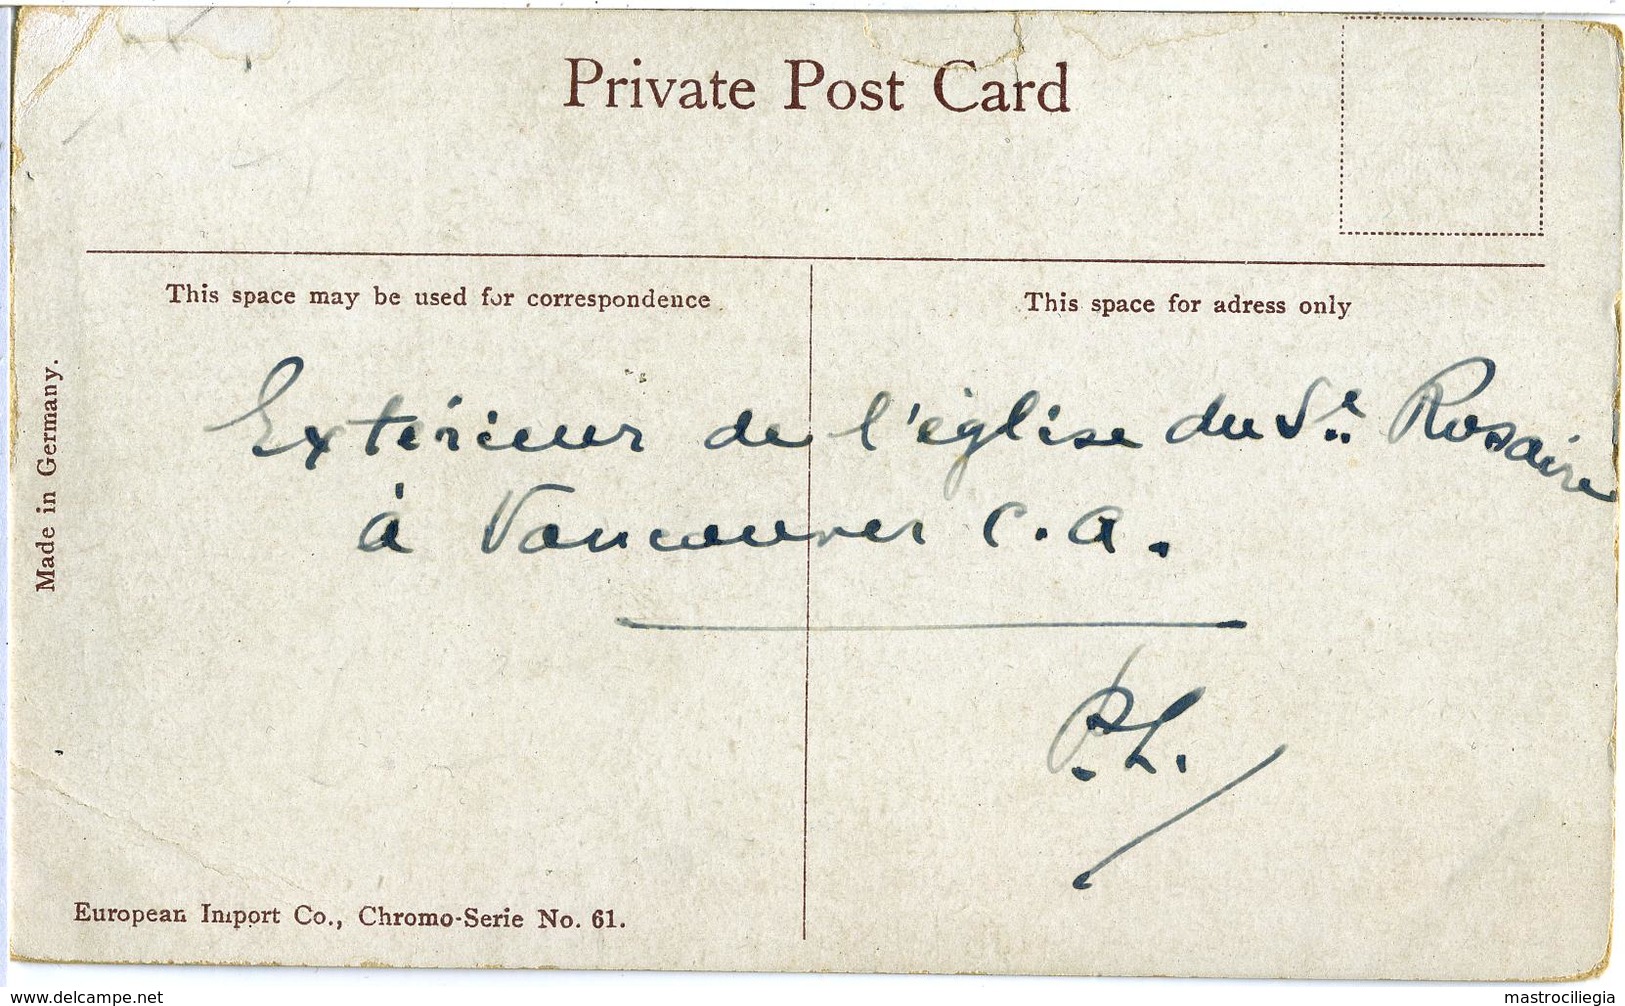 Private Post Card
This space may be used for correspondence
This space for adress only
Made in Germany.
Extérieur de l'église du St. Rosaire
à Vancouver C.A.
P.L.
European Import Co., Chromo-Serie No. 61.
www.delcampe.net
mastrociliegia